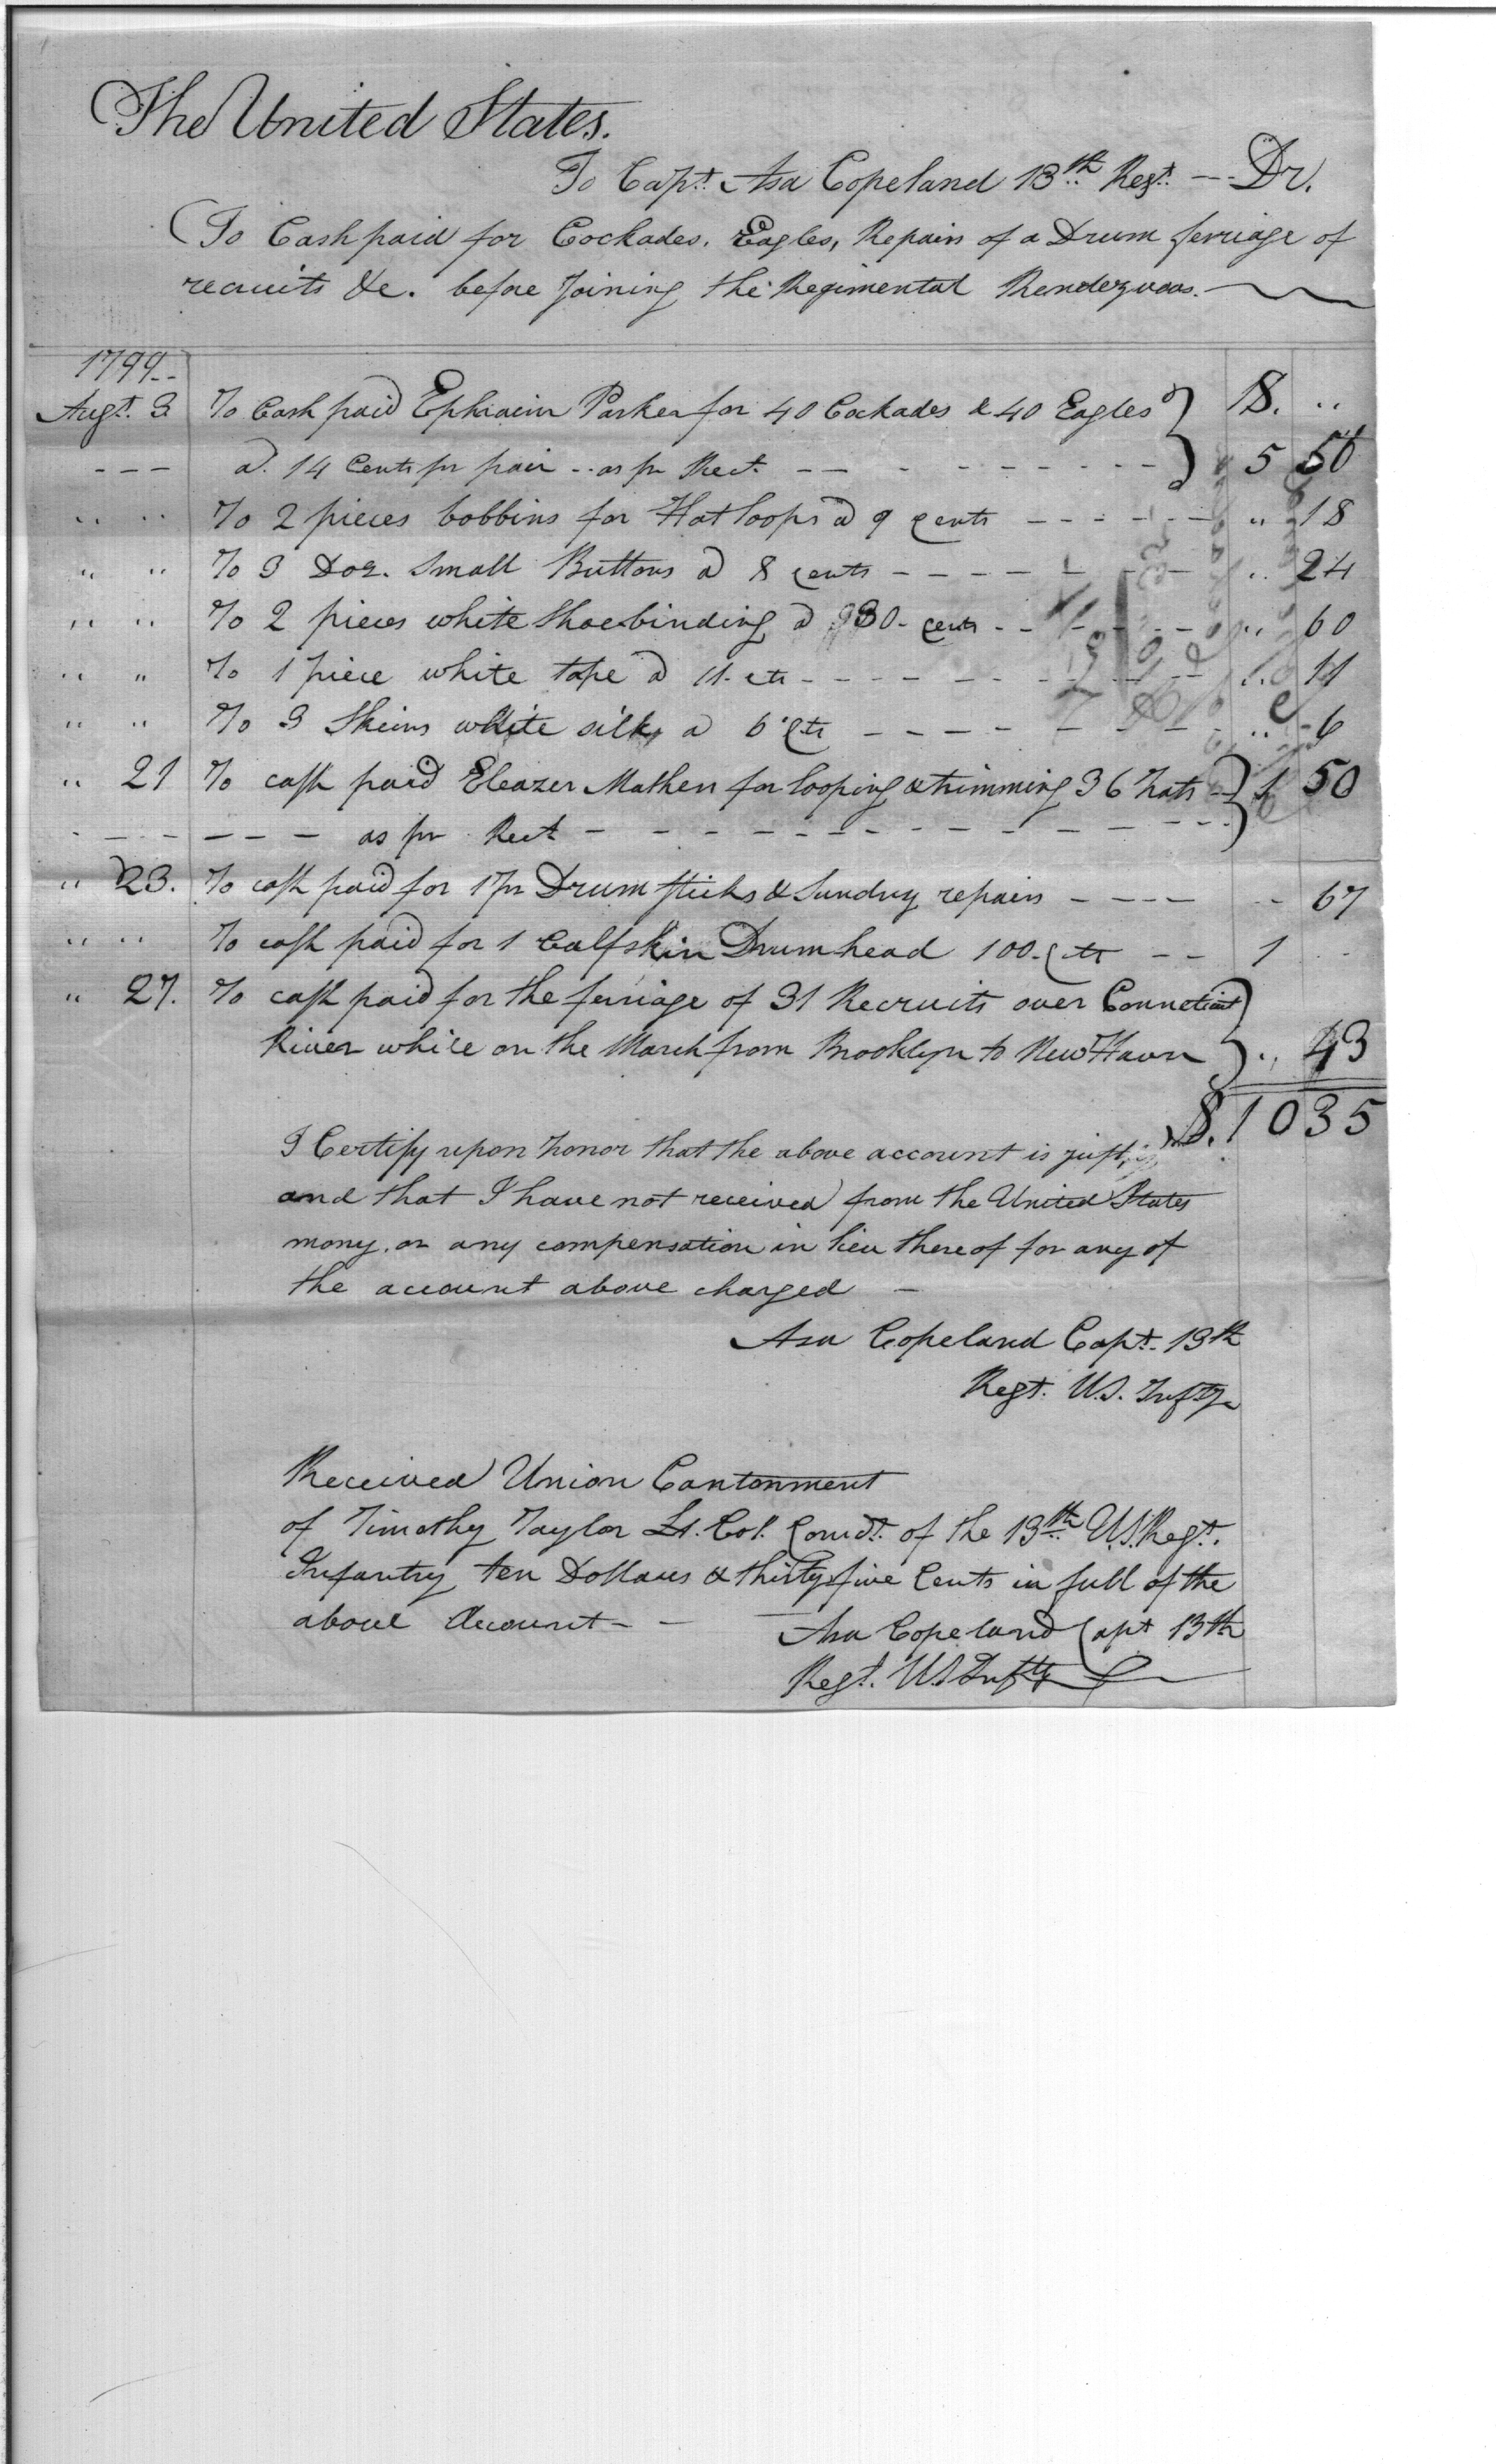 The United States.
To Capt. Asa Copeland 13th Regt. -- Dr.
To Cash paid for Cockades, Eagles, Repairs of a Drum ferriage of
recruits &c. before Joining the Regimental Rendezvous.
1799--
Augt. 3 To Cash paid Ephraim Parker for 40 Cockades & 40 Eagles } $. ..
--- a. 14 Cents pr pair .. as pr Rect. -- - - - - } 5 56
" " To 2 pieces bobbins for Hat loops a 9 cents - - - - " 18
" " To 3 Doz. Small Buttons a 8 cents - - - - " 24
" " To 2 pieces white Shoebinding a 30. cents - - - " 60
" " To 1 piece white tape a 11. cts - - - - " 11
" " To 3 Skeins white silk, a 6 Cts - - - - " - 6
" 21 To cash paid Eleazer Mather for looping & trimming 36 hats -- } 1 50
- - - - - - as pr Rect - - - - - -
" 23. To cash paid for 1 pr Drum sticks & Sundry repairs - - - - -- 67
" " To cash paid for 1 Calfskin Drumhead 100. Cts - - 1 - -
" 27. To cash paid for the ferriage of 31 Recruits over Connecticut }
River while on the March from Brooklyn to New Haven } " 43
$. 10 35
I Certify upon honor that the above account is just,
and that I have not received from the United States
mony, or any compensation in lieu thereof for any of
the account above charged -
Asa Copeland Capt. 13th
Regt. U.S. Infty
Received Union Cantonment
of Timothy Taylor Lt. Col. Comdt. of the 13th U.S. Regt.
Infantry ten Dollars & thirty five Cents in full of the
above Account - -
Asa Copeland Capt 13th
Regt. US Infty